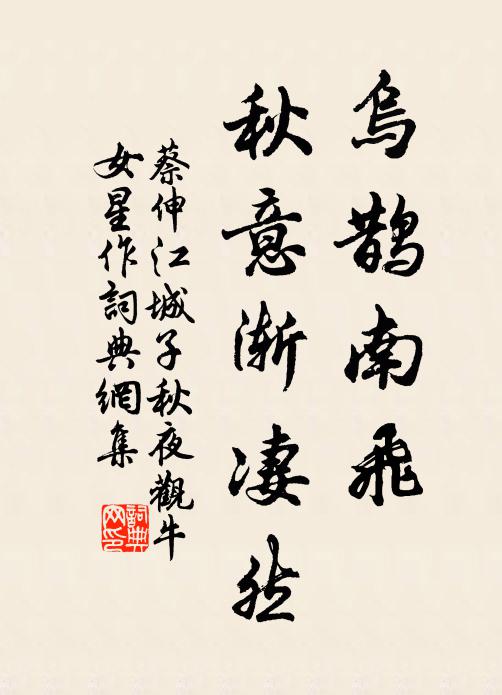 烏鵲南飛
秋意漸凄然
蔡伸江城子秋夜觀牛
女星作詞典網集
詞典
网印